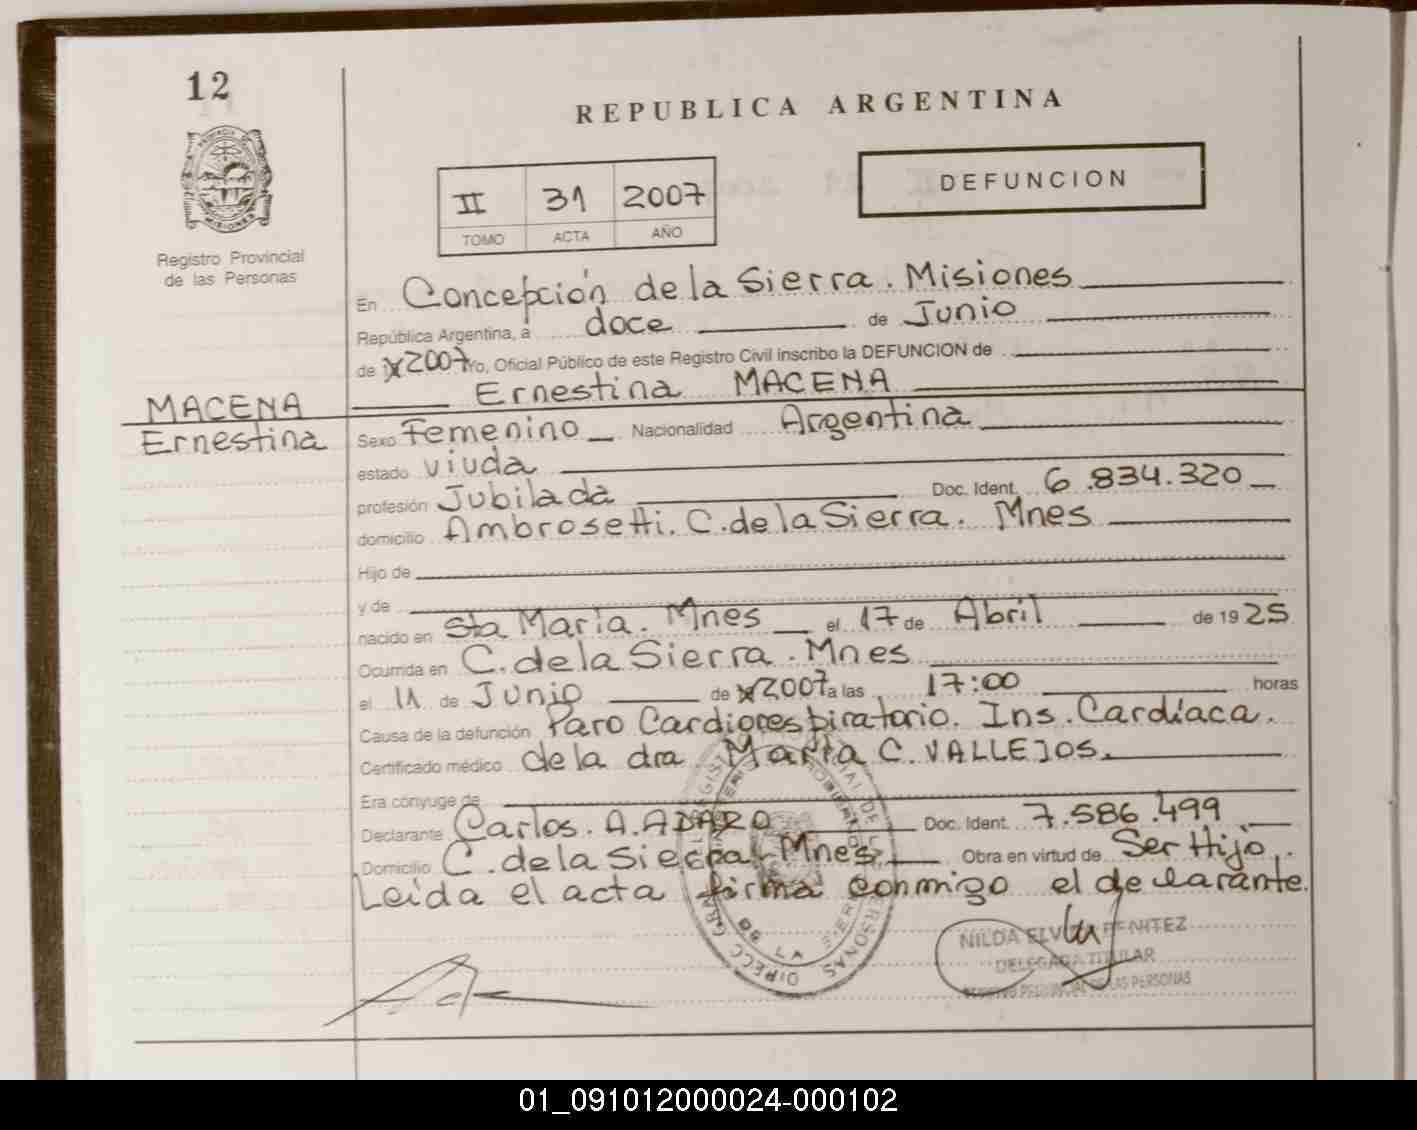 12
REPUBLICA ARGENTINA
II 31 2007
TOMO ACTA AÑO
DEFUNCION
PROVINCIA
MISIONES
Registro Provincial
de las Personas
En Concepción de la Sierra. Misiones
República Argentina, a doce de Junio
de 2007 Yo, Oficial Público de este Registro Civil inscribo la DEFUNCION de
Ernestina MACENA
MACENA
Ernestina
Sexo Femenino Nacionalidad Argentina
estado viuda
profesión Jubilada Doc. Ident. 6.834.320
domicilio Ambrosetti. C. de la Sierra. Mnes
Hijo de
y de
nacido en Sta María. Mnes el 17 de Abril de 1925
Ocurrida en C. de la Sierra. Mnes
el 11 de Junio de 2007 a las 17:00 horas
Causa de la defunción Paro Cardiorespiratorio. Ins. Cardíaca.
Certificado médico de la dra. María C. VALLEJOS.
Era cónyuge de
Declarante Carlos. A. ADARO Doc. Ident. 7.586.499
Domicilio C. de la Sierra. Mnes Obra en virtud de Ser Hijo.
Leída el acta firma conmigo el declarante.
NILDA BENITEZ
DELEGADA TITULAR
LAS PERSONAS
01_091012000024-000102